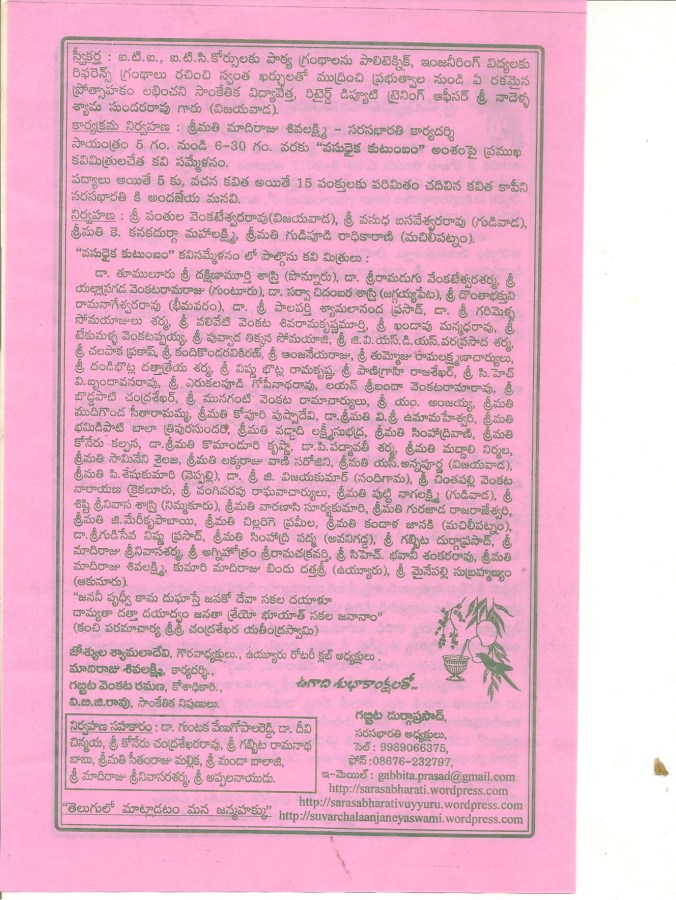 స్వీకర్త : ఐ.టి.ఐ., ఐ.టి.సి.కోర్సులకు పాఠ్య గ్రంథాలను పాలిటెక్నిక్, ఇంజనీరింగ్ విద్యలకు
రిఫరెన్స్ గ్రంథాలు రచించి స్వంత ఖర్చులతో ముద్రించి ప్రభుత్వాల నుండి ఏ రకమైన
ప్రోత్సాహకం లభించని సాంకేతిక విద్యావేత్త, రిటైర్డ్ డిప్యూటి ట్రైనింగ్ ఆఫీసర్ శ్రీ నాదెళ్ళ
శ్యామ సుందరరావు గారు (విజయవాడ).
కార్యక్రమ నిర్వహణ : శ్రీమతి మాదిరాజు శివలక్ష్మి – సరసభారతి కార్యదర్శి
సాయంత్రం 5 గం. నుండి 6-30 గం. వరకు "వసుధైక కుటుంబం" అంశంపై ప్రముఖ
కవిమిత్రులచేత కవి సమ్మేళనం.
పద్యాలు అయితే 5 కు, వచన కవిత అయితే 15 పంక్తులకు పరిమితం చదివిన కవిత కాపీని
సరసభారతి కి అందజేయ మనవి.
నిర్వహణ : శ్రీ పంతుల వెంకటేశ్వరరావు(విజయవాడ), శ్రీ వసుధ బసవేశ్వరరావు (గుడివాడ),
శ్రీమతి కె. కనకదుర్గా మహాలక్ష్మి, శ్రీమతి గుడిపూడి రాధికారాణి (మచిలీపట్నం).
"వసుధైక కుటుంబం" కవిసమ్మేళనం లో పాల్గొను కవి మిత్రులు :
డా. తూములూరు శ్రీ దక్షిణామూర్తి శాస్త్రి (పొన్నూరు), డా. శ్రీరామడుగు వేంకటేశ్వరశర్మ, శ్రీ
యల్లాప్రగడ వెంకటరామరాజు (గుంటూరు), డా. సర్వా చిదంబర శాస్త్రి (జగ్గయ్యపేట), శ్రీ దొంతాభక్తుని
రామనాగేశ్వరరావు (భీమవరం), డా. శ్రీ పాలపర్తి శ్యామలానంద ప్రసాద్, డా. శ్రీ గరిమెళ్ళ
సోమయాజులు శర్మ, శ్రీ వలివేటి వెంకట శివరామకృష్ణమూర్తి, శ్రీ ఖండాపు మన్మధరావు, శ్రీ
టేకుమళ్ళ వెంకటప్పయ్య, శ్రీ పువ్వాడ తిక్కన సోమయాజి, శ్రీ జి.వి.యస్.డి.యస్.వరప్రసాద శర్మ,
శ్రీ చలపాక ప్రకాష్, శ్రీ కందికొండరవికిరణ్, శ్రీ ఆంజనేయరాజు, శ్రీ తుమ్మోజు రామలక్ష్మణాచార్యులు,
శ్రీ దండిభొట్ల దత్తాత్రేయ శర్మ, శ్రీ విష్ణు భొట్ల రామకృష్ణ, శ్రీ పాణిగ్రాహి రాజశేఖర్, శ్రీ సి.హెచ్
వి.బృందావనరావు, శ్రీ ఎరుకలపూడి గోపీనాథరావు, లయన్ శ్రీబందా వెంకటరామారావు, శ్రీ
బొడ్డపాటి చంద్రశేఖర్, శ్రీ మునగంటి వెంకట రామాచార్యులు, శ్రీ యం. అంజయ్య, శ్రీమతి
ముదిగొండ సీతారామమ్మ, శ్రీమతి కోపూరి పుష్పాదేవి, డా.శ్రీమతి వి.శ్రీ ఉమామహేశ్వరి, శ్రీమతి
భమిడిపాటి బాలా త్రిపురసుందరి, శ్రీమతి వడ్డాది లక్ష్మీసుభద్ర, శ్రీమతి సింహాద్రివాణి, శ్రీమతి
కోనేరు కల్పన, డా.శ్రీమతి కొమాండూరి కృష్ణా, డా.పి.పద్మావతీ శర్మ, శ్రీమతి మద్దాలి నిర్మల,
శ్రీమతి సామినేని శైలజ, శ్రీమతి లక్కరాజు వాణీ సరోజిని, శ్రీమతి యస్.అన్నపూర్ణ (విజయవాడ),
శ్రీమతి పి.శేషుకుమారి (నెప్పల్లి), డా. శ్రీ జి. విజయకుమార్ (నందిగామ), శ్రీ చింతపల్లి వెంకట
నారాయణ (కైకలూరు), శ్రీ వంగివరపు రాఘవాచార్యులు, శ్రీమతి పుట్టి నాగలక్ష్మి (గుడివాడ), శ్రీ
శిష్ట్లి శ్రీనివాస శాస్త్రి (నిమ్మకూరు), శ్రీమతి వారణాసి సూర్యకుమారి, శ్రీమతి గురజాడ రాజరాజేశ్వరి,
శ్రీమతి జి.మేరీకృపాబాయి, శ్రీమతి చిల్లరిగె ప్రమీల, శ్రీమతి కందాళ జానకి (మచిలీపట్నం),
డా.శ్రీగుడిసేవ విష్ణు ప్రసాద్, శ్రీమతి సింహాద్రి పద్మ (అవనిగడ్డ), శ్రీ గబ్బిట దుర్గాప్రసాద్, శ్రీ
మాదిరాజు శ్రీనివాసశర్మ, శ్రీ అగ్నిహోత్రం శ్రీరామచక్రవర్తి, శ్రీ సిహెచ్. భవానీ శంకరరావు, శ్రీమతి
మాదిరాజు శివలక్ష్మి, కుమారి మాదిరాజు బిందు దత్తశ్రీ (ఉయ్యూరు), శ్రీ మైనేపల్లి సుబ్రహ్మణ్యం
(ఆకునూరు).
"జననీ పృధ్వీ కామ దుఘాస్తే జనకో దేవా సకల దయాళూ
దామ్యతా దత్తా దయాధ్వం జనతా శ్రేయో భూయాత్ సకల జనానాం"
(కంచి పరమాచార్య శ్రీశ్రీ చంద్రశేఖర యతీంద్రస్వామి)
జోశ్యుల శ్యామలాదేవి, గౌరవాధ్యక్షులు., ఉయ్యూరు రోటరీ క్లబ్ అధ్యక్షులు .
మాదిరాజు శివలక్ష్మి, కార్యదర్శి.,
గబ్బిట వెంకట రమణ, కోశాధికారి.,
వి.బి.జి.రావు, సాంకేతిక నిపుణులు.
ఉగాది శుభాకాంక్షలతో..
నిర్వహణ సహకారం : డా. గుంటక వేణుగోపాలరెడ్డి, డా. దీవి
చిన్మయ, శ్రీ కోనేరు చంద్రశేఖరరావు, శ్రీ గబ్బిట రామనాథ
బాబు, శ్రీమతి సీతంరాజు మల్లిక, శ్రీ మందా బాలాజి,
శ్రీ మాదిరాజు శ్రీనివాసరశర్మ, శ్రీ అప్పలనాయుడు.
గబ్బిట దుర్గాప్రసాద్,
సరసభారతి అధ్యక్షులు,
సెల్ : 9989066375,
ఫోన్ :08676-232797,
ఇ-మెయిల్ : gabbita.prasad@gmail.com
http://sarasabharati.wordpress.com
http://sarasabharativuyyuru.wordpress.com
"తెలుగులో మాట్లాడటం మన జన్మహక్కు" http://suvarchalaanjaneyaswami.wordpress.com